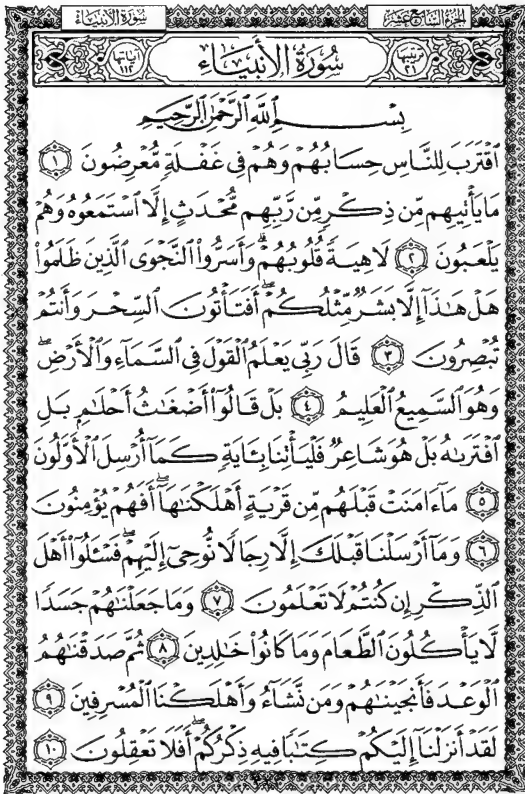 الجزء السابع عشر
سورة الأنبياء
ترتيبها ٢١
سُورَةُ الأَنبِيَاءِ
آياتها ١١٢
بِسْمِ ٱللَّهِ ٱلرَّحْمَٰنِ ٱلرَّحِيمِ
ٱقْتَرَبَ لِلنَّاسِ حِسَابُهُمْ وَهُمْ فِى غَفْلَةٍ مُّعْرِضُونَ ١
مَا يَأْتِيهِم مِّن ذِكْرٍ مِّن رَّبِّهِم مُّحْدَثٍ إِلَّا ٱسْتَمَعُوهُ وَهُمْ
يَلْعَبُونَ ٢ لَاهِيَةً قُلُوبُهُمْ ۗ وَأَسَرُّوا۟ ٱلنَّجْوَى ٱلَّذِينَ ظَلَمُوا۟
هَلْ هَـٰذَآ إِلَّا بَشَرٌ مِّثْلُكُمْ ۖ أَفَتَأْتُونَ ٱلسِّحْرَ وَأَنتُمْ
تُبْصِرُونَ ٣ قَالَ رَبِّى يَعْلَمُ ٱلْقَوْلَ فِى ٱلسَّمَآءِ وَٱلْأَرْضِ ۖ
وَهُوَ ٱلسَّمِيعُ ٱلْعَلِيمُ ٤ بَلْ قَالُوٓا۟ أَضْغَـٰثُ أَحْلَـٰمٍ بَلِ
ٱفْتَرَىٰهُ بَلْ هُوَ شَاعِرٌ فَلْيَأْتِنَا بِـَٔايَةٍ كَمَآ أُرْسِلَ ٱلْأَوَّلُونَ
٥ مَآ ءَامَنَتْ قَبْلَهُم مِّن قَرْيَةٍ أَهْلَكْنَـٰهَآ ۖ أَفَهُمْ يُؤْمِنُونَ
٦ وَمَآ أَرْسَلْنَا قَبْلَكَ إِلَّا رِجَالًا نُّوحِىٓ إِلَيْهِمْ ۖ فَسْـَٔلُوٓا۟ أَهْلَ
ٱلذِّكْرِ إِن كُنتُمْ لَا تَعْلَمُونَ ٧ وَمَا جَعَلْنَـٰهُمْ جَسَدًا
لَّا يَأْكُلُونَ ٱلطَّعَامَ وَمَا كَانُوا۟ خَـٰلِدِينَ ٨ ثُمَّ صَدَقْنَـٰهُمُ
ٱلْوَعْدَ فَأَنجَيْنَـٰهُمْ وَمَن نَّشَآءُ وَأَهْلَكْنَا ٱلْمُسْرِفِينَ ٩
لَقَدْ أَنزَلْنَآ إِلَيْكُمْ كِتَـٰبًا فِيهِ ذِكْرُكُمْ ۖ أَفَلَا تَعْقِلُونَ ١٠